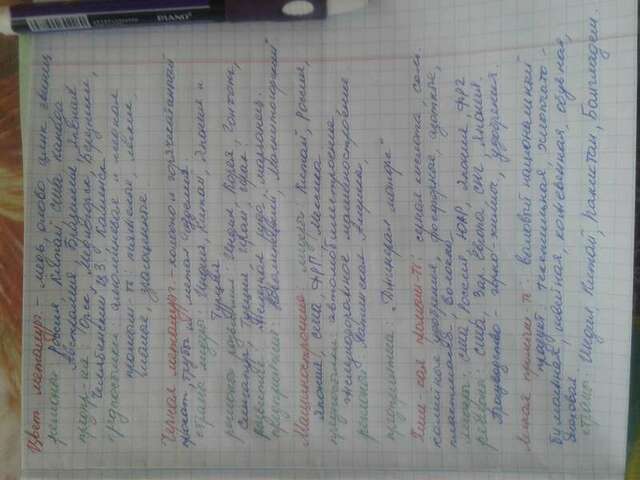 Цвет металург. - медь, олово цинк, свинец
регионы: Россия, Китай, США Канада
Австралия, Бразилия, Япония
предпр-ия: Орск, Медногорск, Березники,
Челябинский ЦЗ, Каменск
предпосылки: алюминевая и медная
промыш-ть: тяжелые, легкие,
малые, драгоценные.
Черная металург. - холодно и горячекатанный
прокат, трубы и метал. изделия.
страны лидеры: Индия, Китай, Япония и
Турция
регионы развития: Индия, Корея, Гонконг,
Сингапур, Турция, Иран, Ирак.
развитие: железная руда, марганец.
предприятия: Магнитогорский
Машиностроение: лидеры Китай, Россия,
Япония, США, ФРГ, Мексика
предпосылки: автомобилестроение,
железнодорожное машиностроение
регионы: Латинская Америка,
предприятие: "Дженерал моторс"
Хим-кая промыш-ть: серная кислота, соль.
калийные удобрения, фосфорные, азотные,
пластмассы, волокно
лидеры: США, Россия, ЮАР, Япония, ФРГ
регионы: США, Зар. Европа, СНГ, Япония.
Производство - горно-химич, удобрения.
Легкая промыш-ть: валовый национальный
продукт: текстильная, хлопчато-
бумажная, швейная, кожевенная, обувная,
меховая
страны: Индия, Китай, Пакистан, Бангладеш.
PIANO